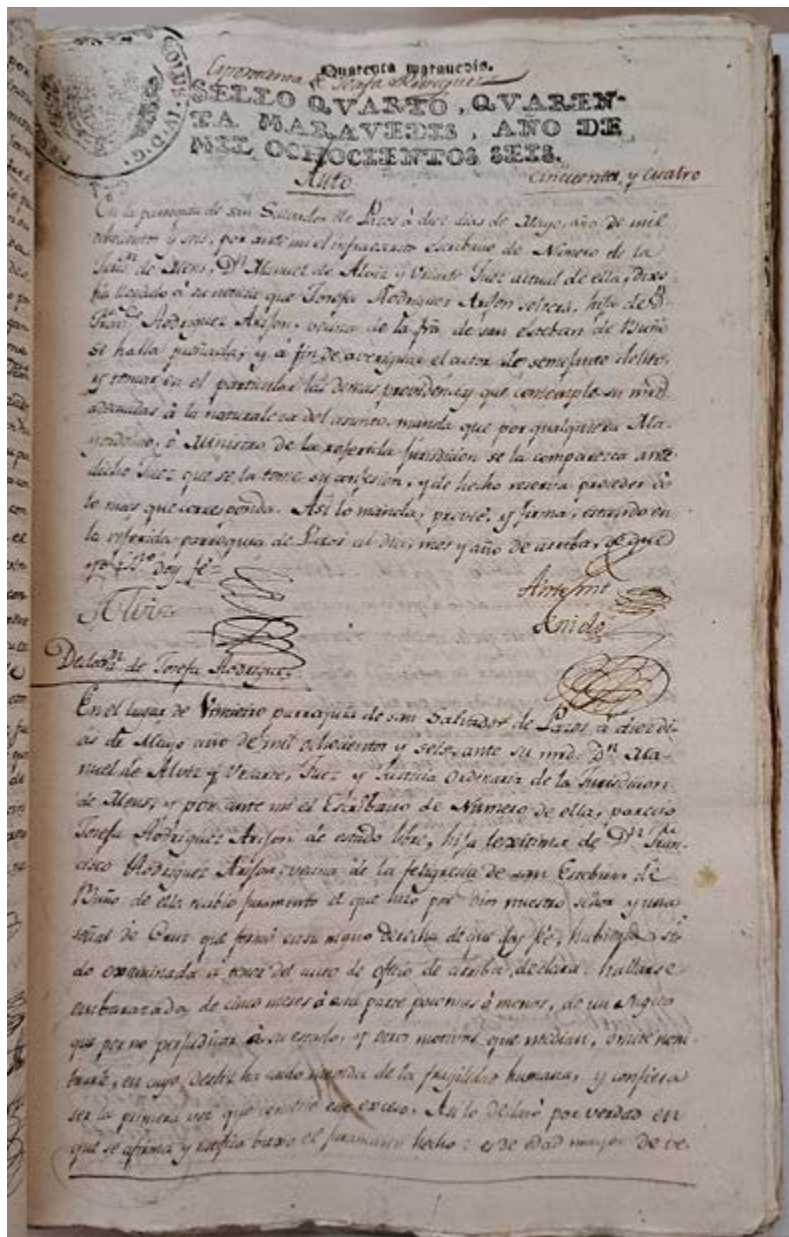 Quarenta maravedis.
Josefa Rodriguez
SELLO QVARTO, QVAREN-
TA MARAVEDIS, AÑO DE
MIL OCHOCIENTOS SEIS.
Auto
Cincuenta, y Cuatro
En la parroquia de san Salvador de à diez dias de Mayo, año de mil
ochocientos y seis, por ante mi el infraescrito escribano de Numero de la
de Dn. Manuel de Alviz y Juez actual de ella, Dixo
llegado à su noticia que Josefa Rodriguez soltera, hija de Dn.
Rodriguez vecina de la de san Esteban de
se halla preñada, y à fin de averiguar el autor de semejante delito,
y tomar en el particular las demas providencias que contemple su mrd.
adecuadas à la naturaleza del asunto, manda que por qualquiera Ma-
yordomo, ò Ministro de la referida jurisdicion se la comparezca ante
dicho Juez que se la tome su confesion, y de hecho reserva proceder à
lo mas que corresponda. Asi lo manda, proveé, y firma, estando en
la referida parroquia de al dia, mes y año de arriba, de que
yo Esno. doy fé=
Alviz
Ante mi
Declon. de Josefa Rodriguez.
En el lugar de parroquia de san Salvador de à diez di-
as de Mayo año de mil ochocientos y seis, ante su mrd. Dn. Ma-
nuel de Alviz y Juez y Justicia ordinaria de la Jurisdicion
de y por ante mi el Escribano de Numero de ella, parecio
Josefa Rodriguez de estado libre, hija lexitima de Dn. Fran-
cisco Rodriguez vecina de la feligresia de san Esteban de
de ella recibio juramento el que hizo por Dios nuestro señor y una
señal de Cruz que formó en su mano derecha de que doy fé, habiendo si-
do examinada a tenor del auto de oficio de arriba, declara: hallarse
embarazada, de cinco meses à esta parte poco mas à menos, de un sugeto
que por no perjudicar à su estado, y otros motivos que median, omite nom-
brarle, en cuyo desliz ha caido movida de la fragilidad humana, y confiesa
ser la primera vez que comete este exceso. Asi lo declaró por verdad en
que se afirma y ratifica baxo el juramento hecho: es de edad mayor de ve-